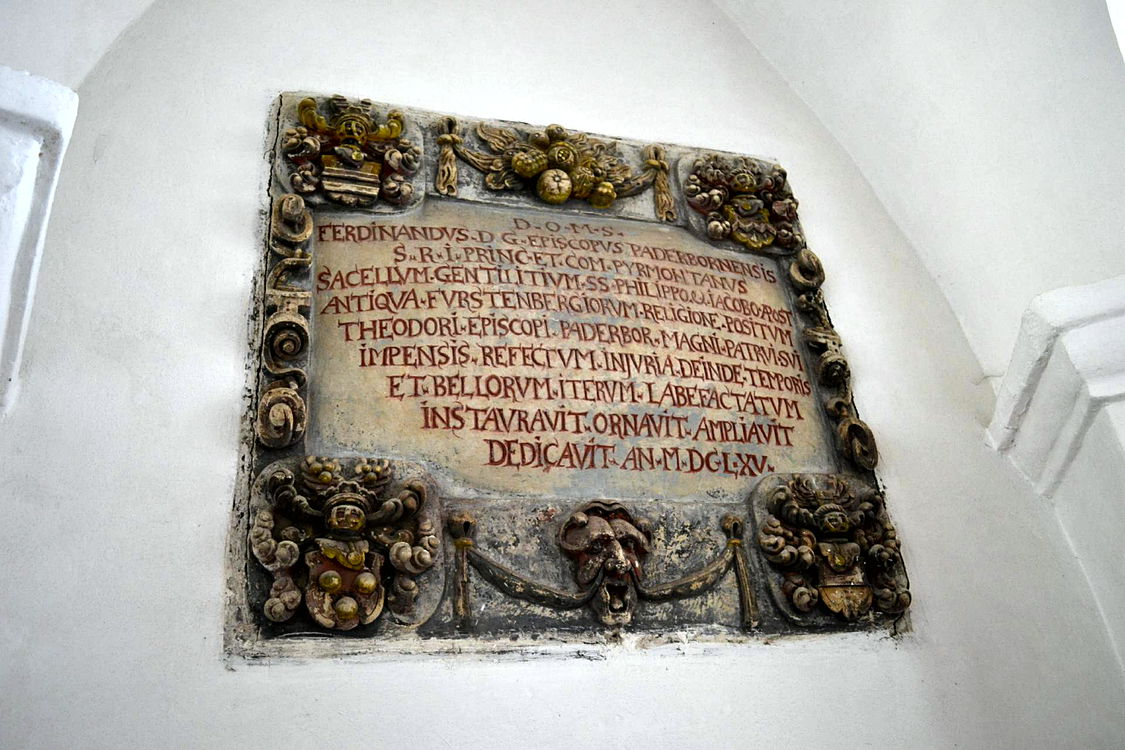 D.O.M.S.
FERDINANDVS.D.G.EPISCOPUS PADERBORNENSIS
S.R.I.PRINC.ET.COM.PYRMONTANUS
SACELLVM.GENTILITIVM.SS.PHILIPPO.&.IACOBO.APOST
ANTIQVA.FVRSTENBERGIORVM.RELIGIONE.POSITVM
THEODORI.EPISCOPI.PADERBOR.MAGNI.PATRVI.SVI
IMPENSIS.REFECTVM.INJVRIA.DEINDE.TEMPORIS
ET.BELLORVM.ITERVM.LABEFACTATVM
INSTAVRAVIT.ORNAVIT.AMPLIAVIT
DEDICAVIT.AN.M.DCLXV.